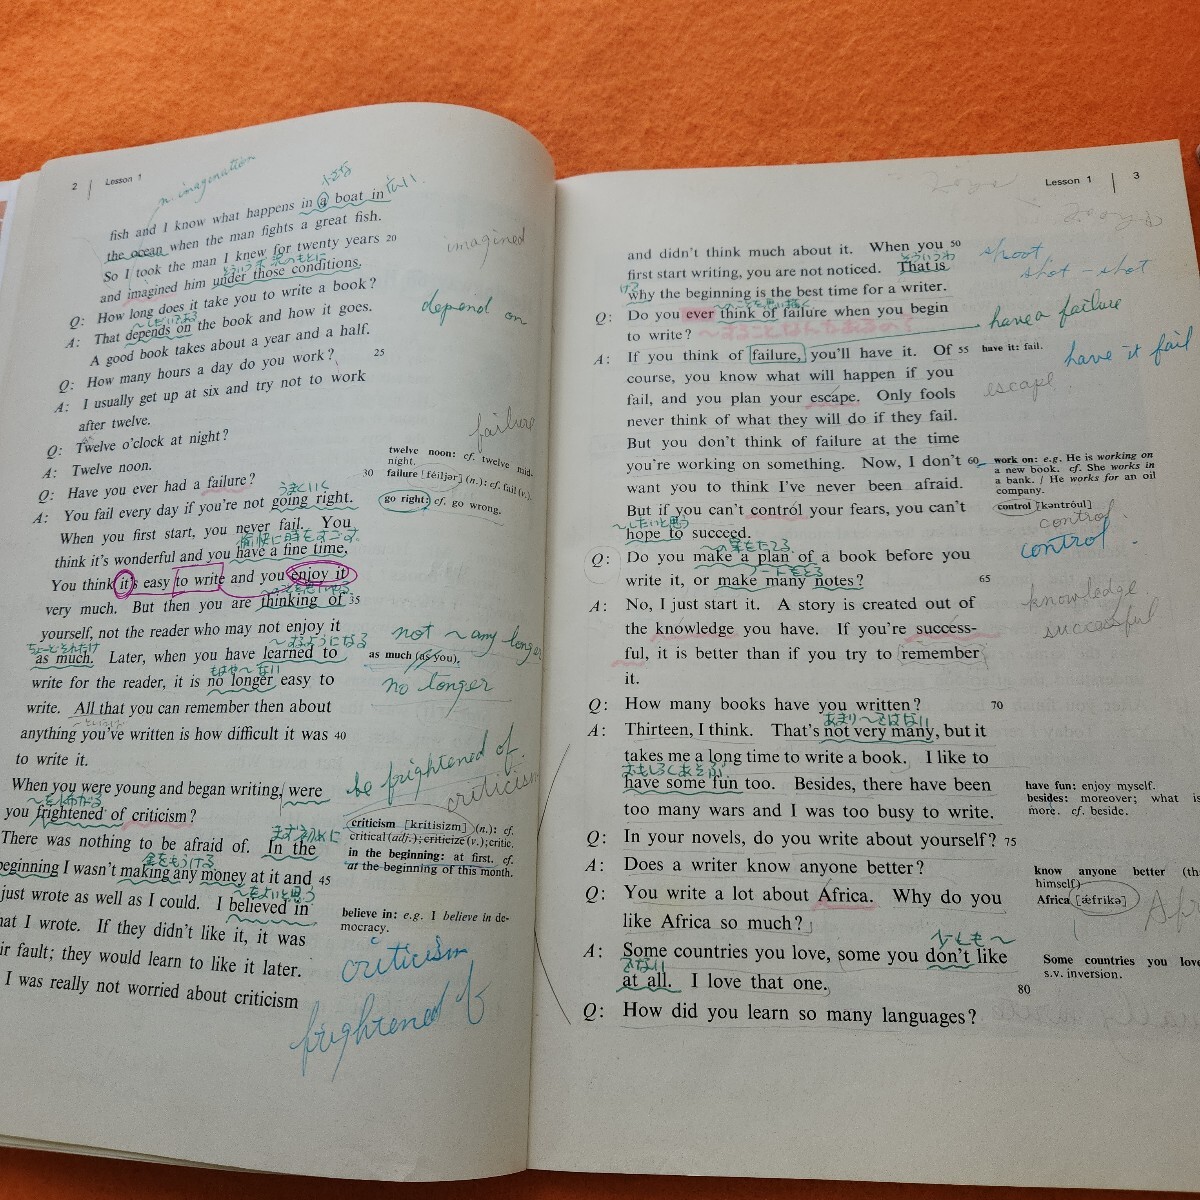 2 Lesson 1
n. imagenation
fish and I know what happens in a boat in
the ocean when the man fights a great fish.
So I took the man I knew for twenty years 20
imagined
and imagined him under those conditions.
Q: How long does it take you to write a book?
A: That depends on the book and how it goes.
depend on
A good book takes about a year and a half.
Q: How many hours a day do you work? 25
A: I usually get up at six and try not to work
after twelve.
failure
Q: Twelve o'clock at night?
A: Twelve noon.
twelve noon: cf. twelve mid-
night.
Q: Have you ever had a failure? 30
failure [féiljər] (n.): cf. fail (v.).
うまくいく
A: You fail every day if you're not going right.
go right: cf. go wrong.
When you first start, you never fail. You
愉快に時をすごす
think it's wonderful and you have a fine time.
You think it's easy to write and you enjoy it
very much. But then you are thinking of 35
yourself, not the reader who may not enjoy it
not ~ any longer
~するようになる
as much. Later, when you have learned to
as much (as you).
もはや~ない
write for the reader, it is no longer easy to
no longer
write. All that you can remember then about
anything you've written is how difficult it was 40
to write it.
When you were young and began writing, were
be frightened of
criticism
you frightened of criticism?
criticism [krítisizm] (n.): cf.
critical (adj.); criticize (v.); critic.
まず初めに
There was nothing to be afraid of. In the
in the beginning: at first. cf.
at the beginning of this month.
金をもうける
beginning I wasn't making any money at it and 45
just wrote as well as I could. I believed in
believe in: e.g. I believe in de-
mocracy.
what I wrote. If they didn't like it, it was
their fault; they would learn to like it later.
I was really not worried about criticism
criticism
frightened of
Lesson 1 3
and didn't think much about it. When you 50
shoot
shot - shot
first start writing, you are not noticed. That is
why the beginning is the best time for a writer.
Q: Do you ever think of failure when you begin
have a failure
to write?
~することなんてあるの?
A: If you think of failure, you'll have it. Of 55
have it: fail.
have it fail
course, you know what will happen if you
fail, and you plan your escape. Only fools
escape
never think of what they will do if they fail.
But you don't think of failure at the time
you're working on something. Now, I don't 60
work on: e.g. He is working on
a new book. cf. She works in
a bank. / He works for an oil
company.
want you to think I've never been afraid.
But if you can't control your fears, you can't
control [kəntróul]
control.
control.
~したいと思う
hope to succeed.
Q: Do you make a plan of a book before you
ノートをとる
write it, or make many notes? 65
A: No, I just start it. A story is created out of
knowledge
the knowledge you have. If you're success-
successful
ful, it is better than if you try to remember
it.
Q: How many books have you written? 70
あまり~ではない
A: Thirteen, I think. That's not very many, but it
takes me a long time to write a book. I like to
おもしろくあそぶ
have some fun too. Besides, there have been
have fun: enjoy myself.
besides: moreover; what is
more. cf. beside.
too many wars and I was too busy to write.
Q: In your novels, do you write about yourself? 75
A: Does a writer know anyone better?
know anyone better (th
himself)
Q: You write a lot about Africa. Why do you
Africa [ǽfrikə]
like Africa so much?
少しも~
A: Some countries you love, some you don't like
Some countries you love
s.v. inversion.
さない
at all. I love that one. 80
Q: How did you learn so many languages?